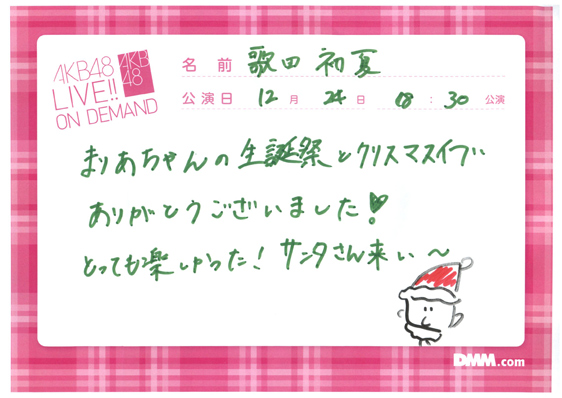 AKB48
LIVE!!
ON DEMAND
AKB
48
名 前 歌田 初夏
公演日 12 月 24 日 18 : 30 公演
まりあちゃんの生誕祭とクリスマスイブ
ありがとうございました!
とっても楽しかった! サンタさん来い〜
DMM.com